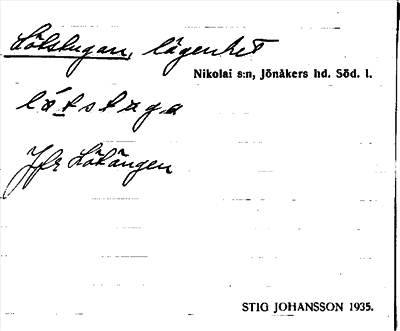 Lötstugan, lägenhet
Nikolai s:n, Jönåkers hd. Söd. l.
lö́tstuga
Jfr Lötängen
STIG JOHANSSON 1935.